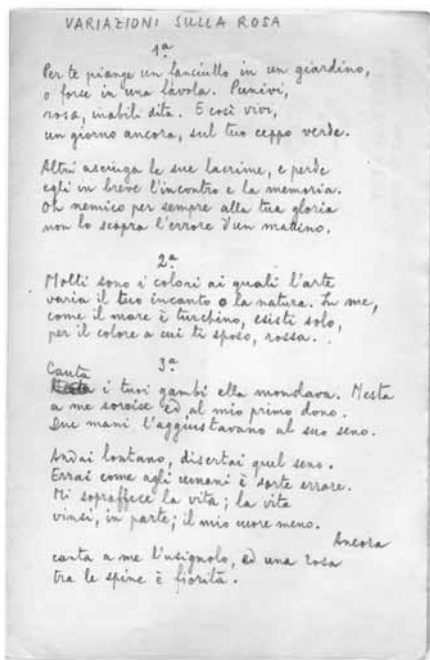 VARIAZIONI SULLA ROSA
1ª
Per te piange un fanciullo in un giardino,
o forse in una favola. Punivi,
rosa, inabili dita. E così vivi,
un giorno ancora, sul tuo ceppo verde.
Altri asciuga le sue lacrime, e perde
egli in breve l'incontro e la memoria.
Oh nemico per sempre alla tua gloria
non lo scopra l'errore d'un mattino.
2ª
Molti sono i colori ai quali l'arte
varia il tuo incanto o la natura. In me,
come il mare è turchino, esisti solo,
per il colore a cui ti sposo, rossa.
3ª
Cauta
i tuoi gambi ella mondava. Mesta
a me sorrise ed al mio primo dono.
Due mani l'aggiustavano al suo seno.
Andai lontano, disertai quel seno.
Errai come agli umani è sorte errare.
Mi sopraffece la vita; la vita
vinsi, in parte; il mio cuore meno.
Ancora
canta a me l'usignolo, ed una rosa
tra le spine è fiorita.